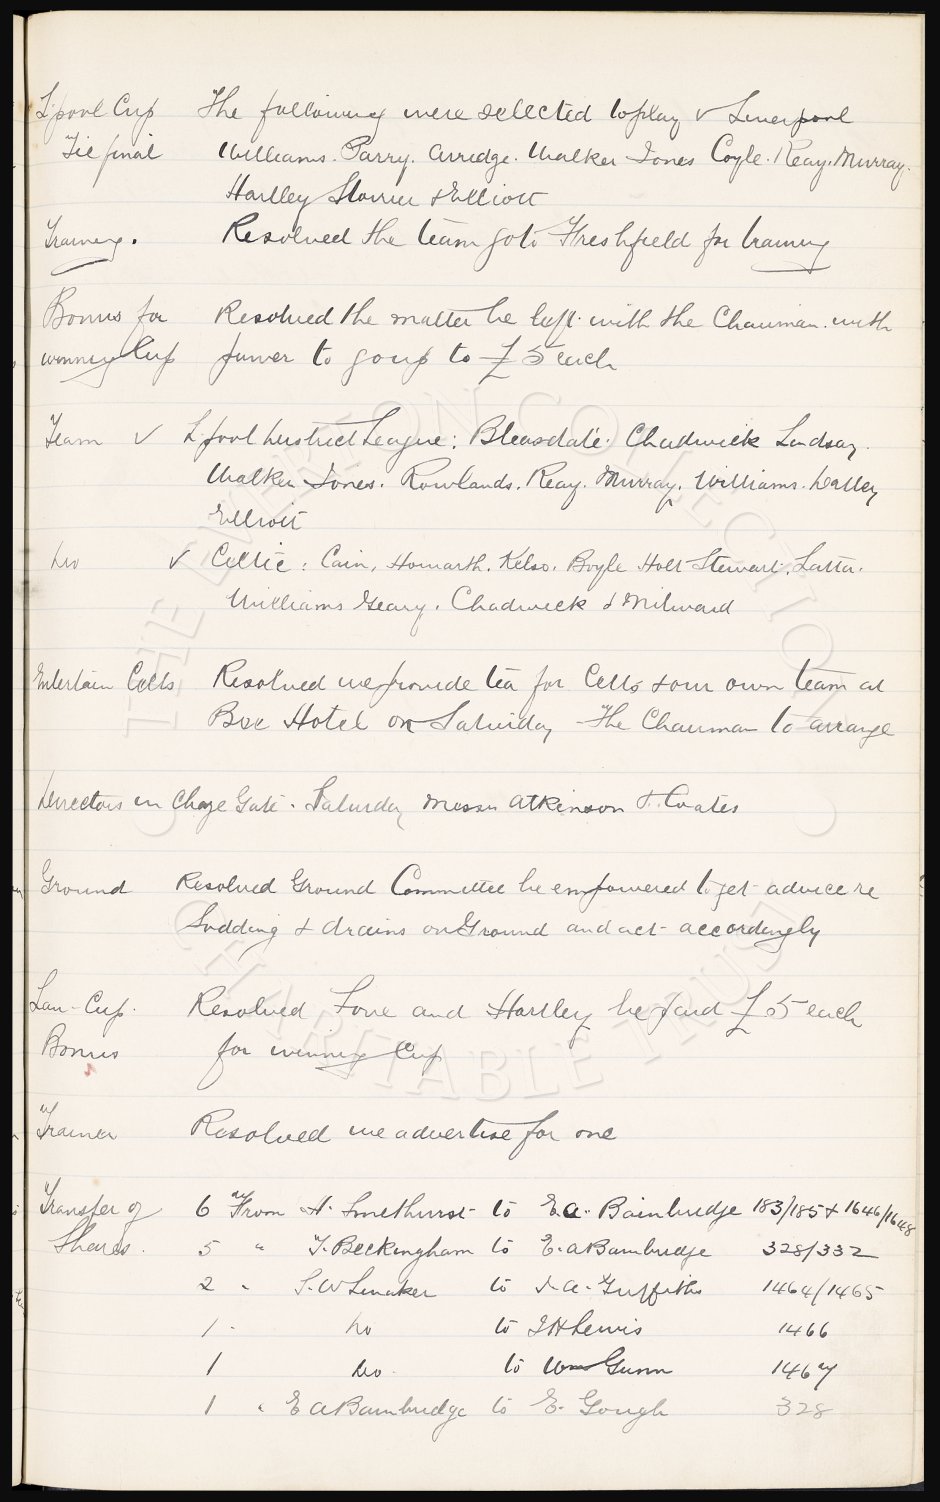 L'pool Cup The following were selected to play v Liverpool
Tie final Williams. Parry. Arridge. Walker Jones Coyle. Reay. Murray.
Hartley Storrier & Elliott
Training. Resolved the team go to Freshfield for training
Bonus for Resolved the matter be left with the Chairman with
winning Cup power to go up to £5 each
Team v L'pool District League: Bleasdale. Chadwick Lindsay.
Walker Jones. Rowlands. Reay. Murray. Williams.
Elliott
Do v Celtic: Cain, Howarth. Kelso. Boyle Holt Stewart. Latta.
Williams Geary. Chadwick & Milward
Entertain Celts Resolved we provide tea for Celts & our own team at
Bee Hotel on Saturday The Chairman to arrange
Directors in Charge Gate. Saturday Messrs Atkinson & Coates
Ground Resolved Ground Committee be empowered to get advice re
Sodding & drains on Ground and act accordingly
Lan Cup. Resolved Love and Hartley be paid £5 each
Bonus for winning Cup
Trainer Resolved we advertise for one
Transfer of 6 From H. Smethurst to E.A. Bainbridge 183/185 & 1646/1648
Shares. 5 " T. Beckingham to E.A Bainbridge 328/332
2 " S.W Linaker to J.A. Griffiths 1464/1465
1 " Do to J H Lewis 1466
1 Do. to Wm Gunn 1467
1 " E A Bainbridge to E. Gough 328
THE EVERTON COLLECTION
CHARITABLE TRUST